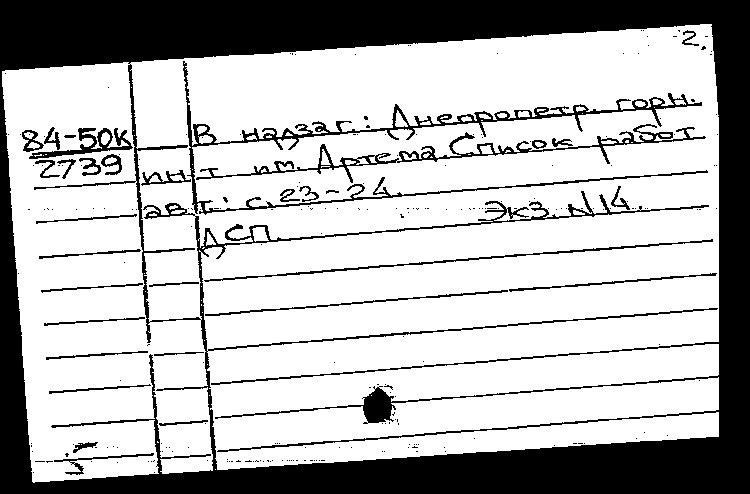 2.
84-50К В надзаг.: Днепропетр. горн.
2739 ин-т им. Артема. Список работ
авт.: с. 23-24.
ДСП. Экз. N 14.
5